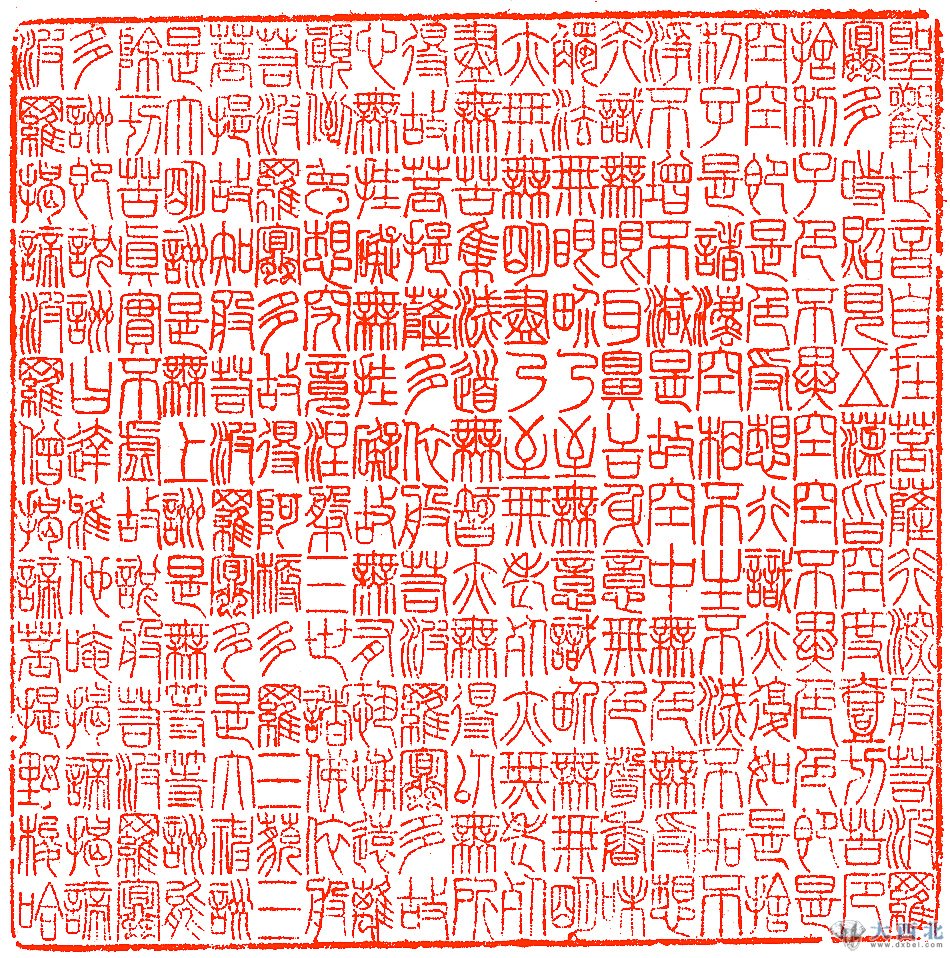 聖觀世音自在菩薩行深般若波羅
蜜多時照見五蘊皆空度壹切苦厄
捨利子色不異空空不異色色即是
空空即是色受想行識亦復如是捨
利子是諸法空相不生不滅不垢不
淨不增不減是故空中無色無受想
行識無眼耳鼻舌身意無色聲香味
觸法無眼界乃至無意識界無無明
亦無無明盡乃至無老死亦無老死
盡無苦集滅道無智亦無得以無所
得故菩提薩多依般若波羅蜜多故
心無挂礙無挂礙故無有恐怖遠離
顛倒夢想究竟涅槃三世諸佛依般
若波羅蜜多故得阿耨多羅三藐三
菩提故知般若波羅蜜多是大神咒
是大明咒是無上咒是無等等咒能
除切苦真實不虛故說般若波羅蜜
多咒即說咒曰達雅他唵揭諦揭諦
波羅揭諦波羅僧揭諦菩提野梭哈
大西北
www.dxbei.com